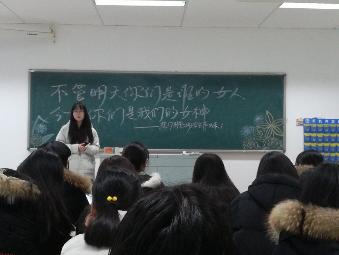 不管明天你们是谁的女人
今天你们是我们的女神